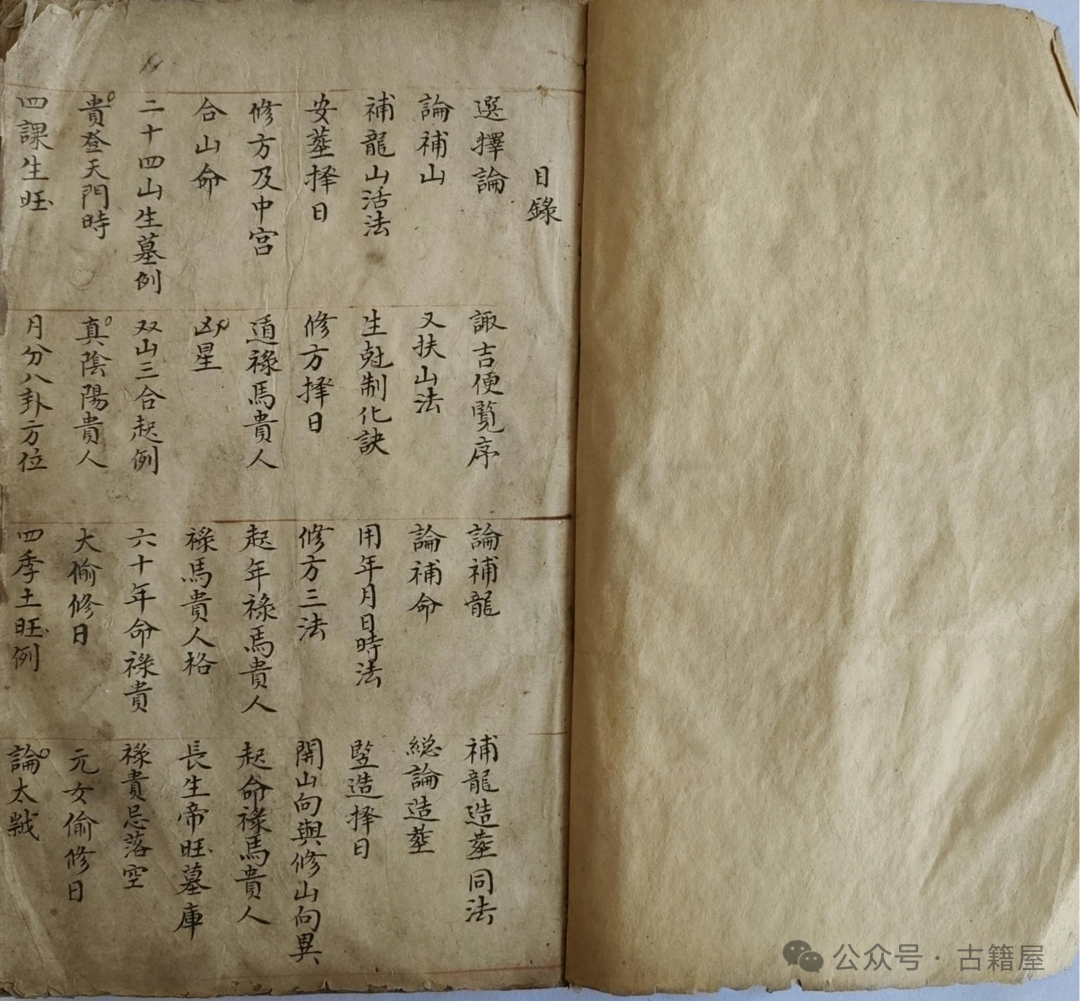 目錄
選擇論 諏吉便覧序 論補龍 補龍造塟同法
論補山 又扶山法 論補命 総論造塟
補龍山活法 生尅制化訣 用年月日時法 竪造择日
安塟择日 修方择日 修方三法 開山向與修山向異
修方及中宮 遁祿馬貴人 起年祿馬貴人 起命祿馬貴人
合山命 凶星 祿馬貴人格 長生帝旺墓庫
二十四山生墓例 双山三合起例 六十年命祿貴 祿貴忌落空
貴登天門時 真陰陽貴人 大偷修日 元女偷修日
四課生旺 月分八卦方位 四季土旺例 論太歲
公众号·古籍屋